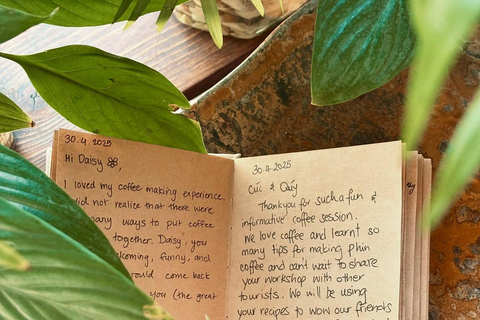 30.4.2025
Hi Daisy
I loved my coffee making experience.
did not realize that there were
many ways to put coffee
together. Daisy, you
funny, and
would come back
you (the great
30.4.2025
Cúc & Quý
Thankyou for such a fun &
informative coffee session.
We love coffee and learnt so
many tips for making phin
coffee and can't wait to share
your workshop with other
tourists. We will be using
your recipes to wow our friends